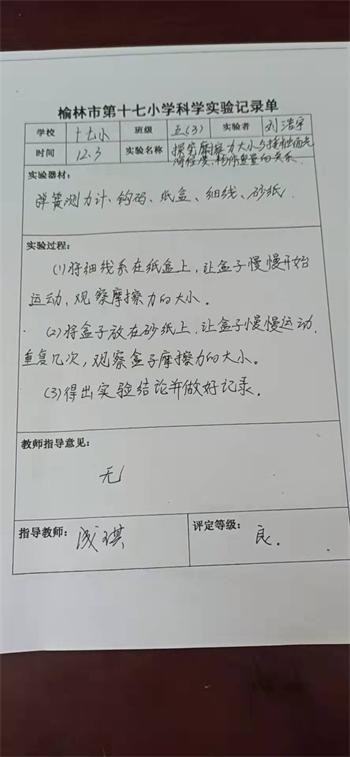 榆林市第十七小学科学实验记录单
学校 十七小 班级 五(3) 实验者 刘浩宇
时间 12.3 实验名称 探究摩擦力大小与接触面光
滑程度、物体重量的关系.
实验器材:
弹簧测力计、钩码、纸盒、细线、砂纸.
实验过程:
(1)将细线系在纸盒上,让盒子慢慢开始
运动,观察摩擦力的大小.
(2)将盒子放在砂纸上,让盒子慢慢运动.
重复几次,观察盒子摩擦力的大小。
(3)得出实验结论并做好记录.
教师指导意见:
无
指导教师: 琪 评定等级: 良.